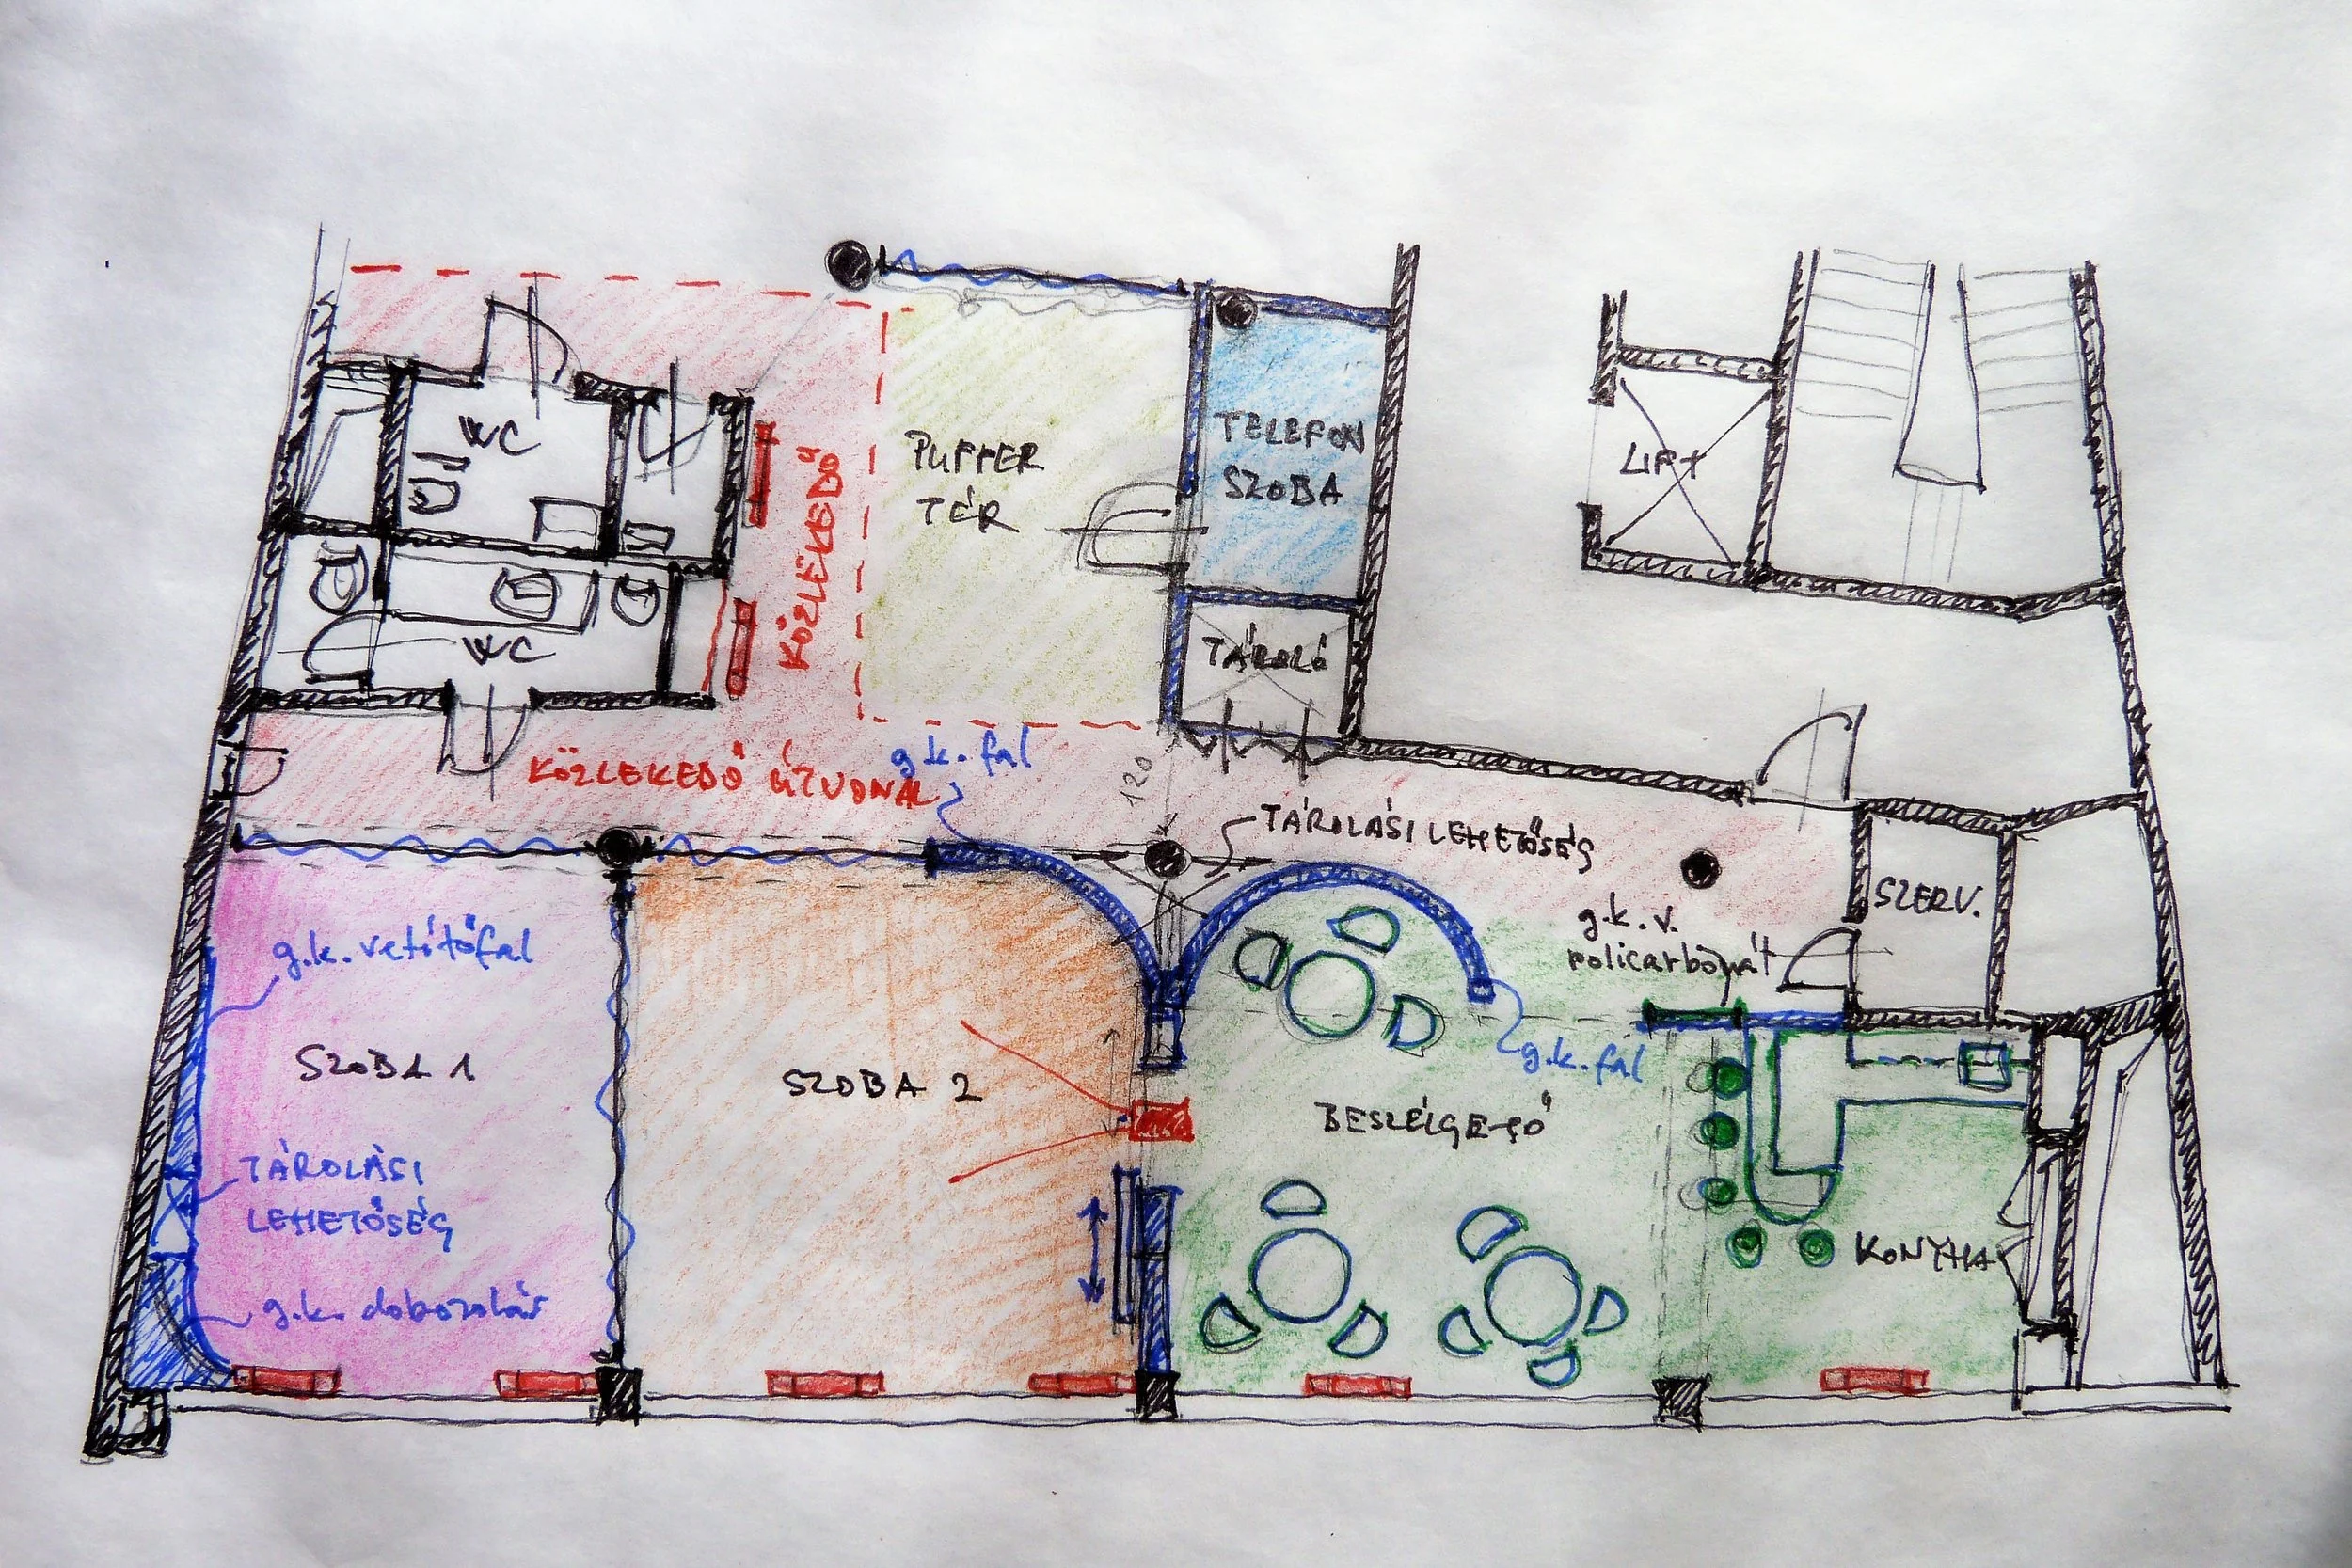 WC
KÖZLEKEDŐ
PUFFER
TÉR
TELEFON
SZOBA
LIFT
WC
TÁROLÓ
KÖZLEKEDŐ ÚTVONAL
g.k. fal
120
TÁROLÁSI LEHETŐSÉG
SZERV.
g.k. v.
policarbonát
g.k. vetítőfal
g.k. fal
SZOBA 1
SZOBA 2
BESZÉLGETŐ
TÁROLÁSI
LEHETŐSÉG
KONYHA
g.k. dobozolás